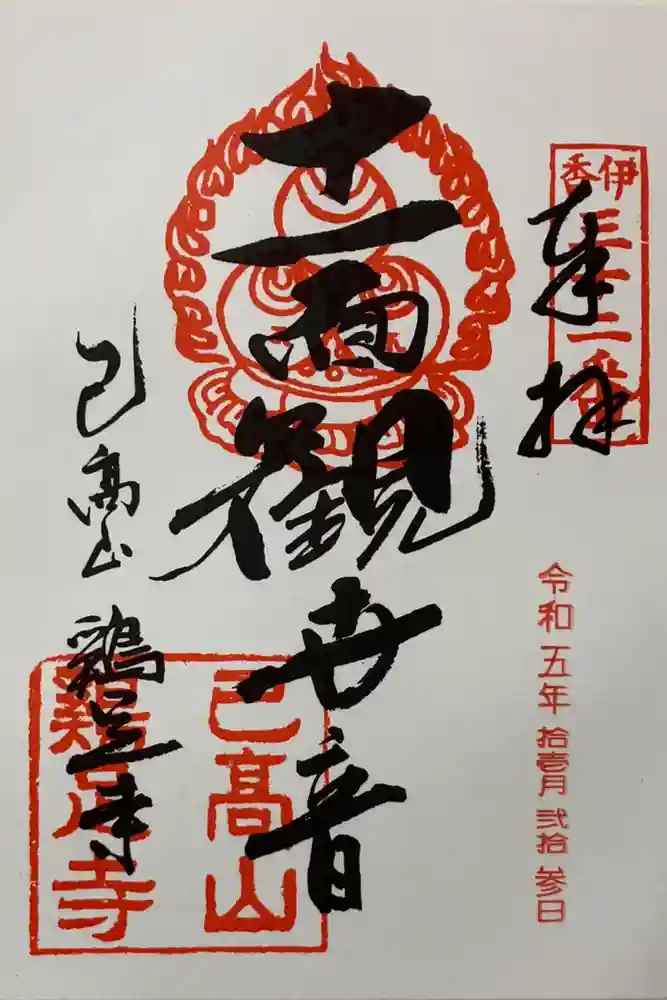 伊香三十二番
奉拝
令和五年拾壹月弐拾参日
十一面観世音
己高山 鶏足寺
己高山
鶏足寺